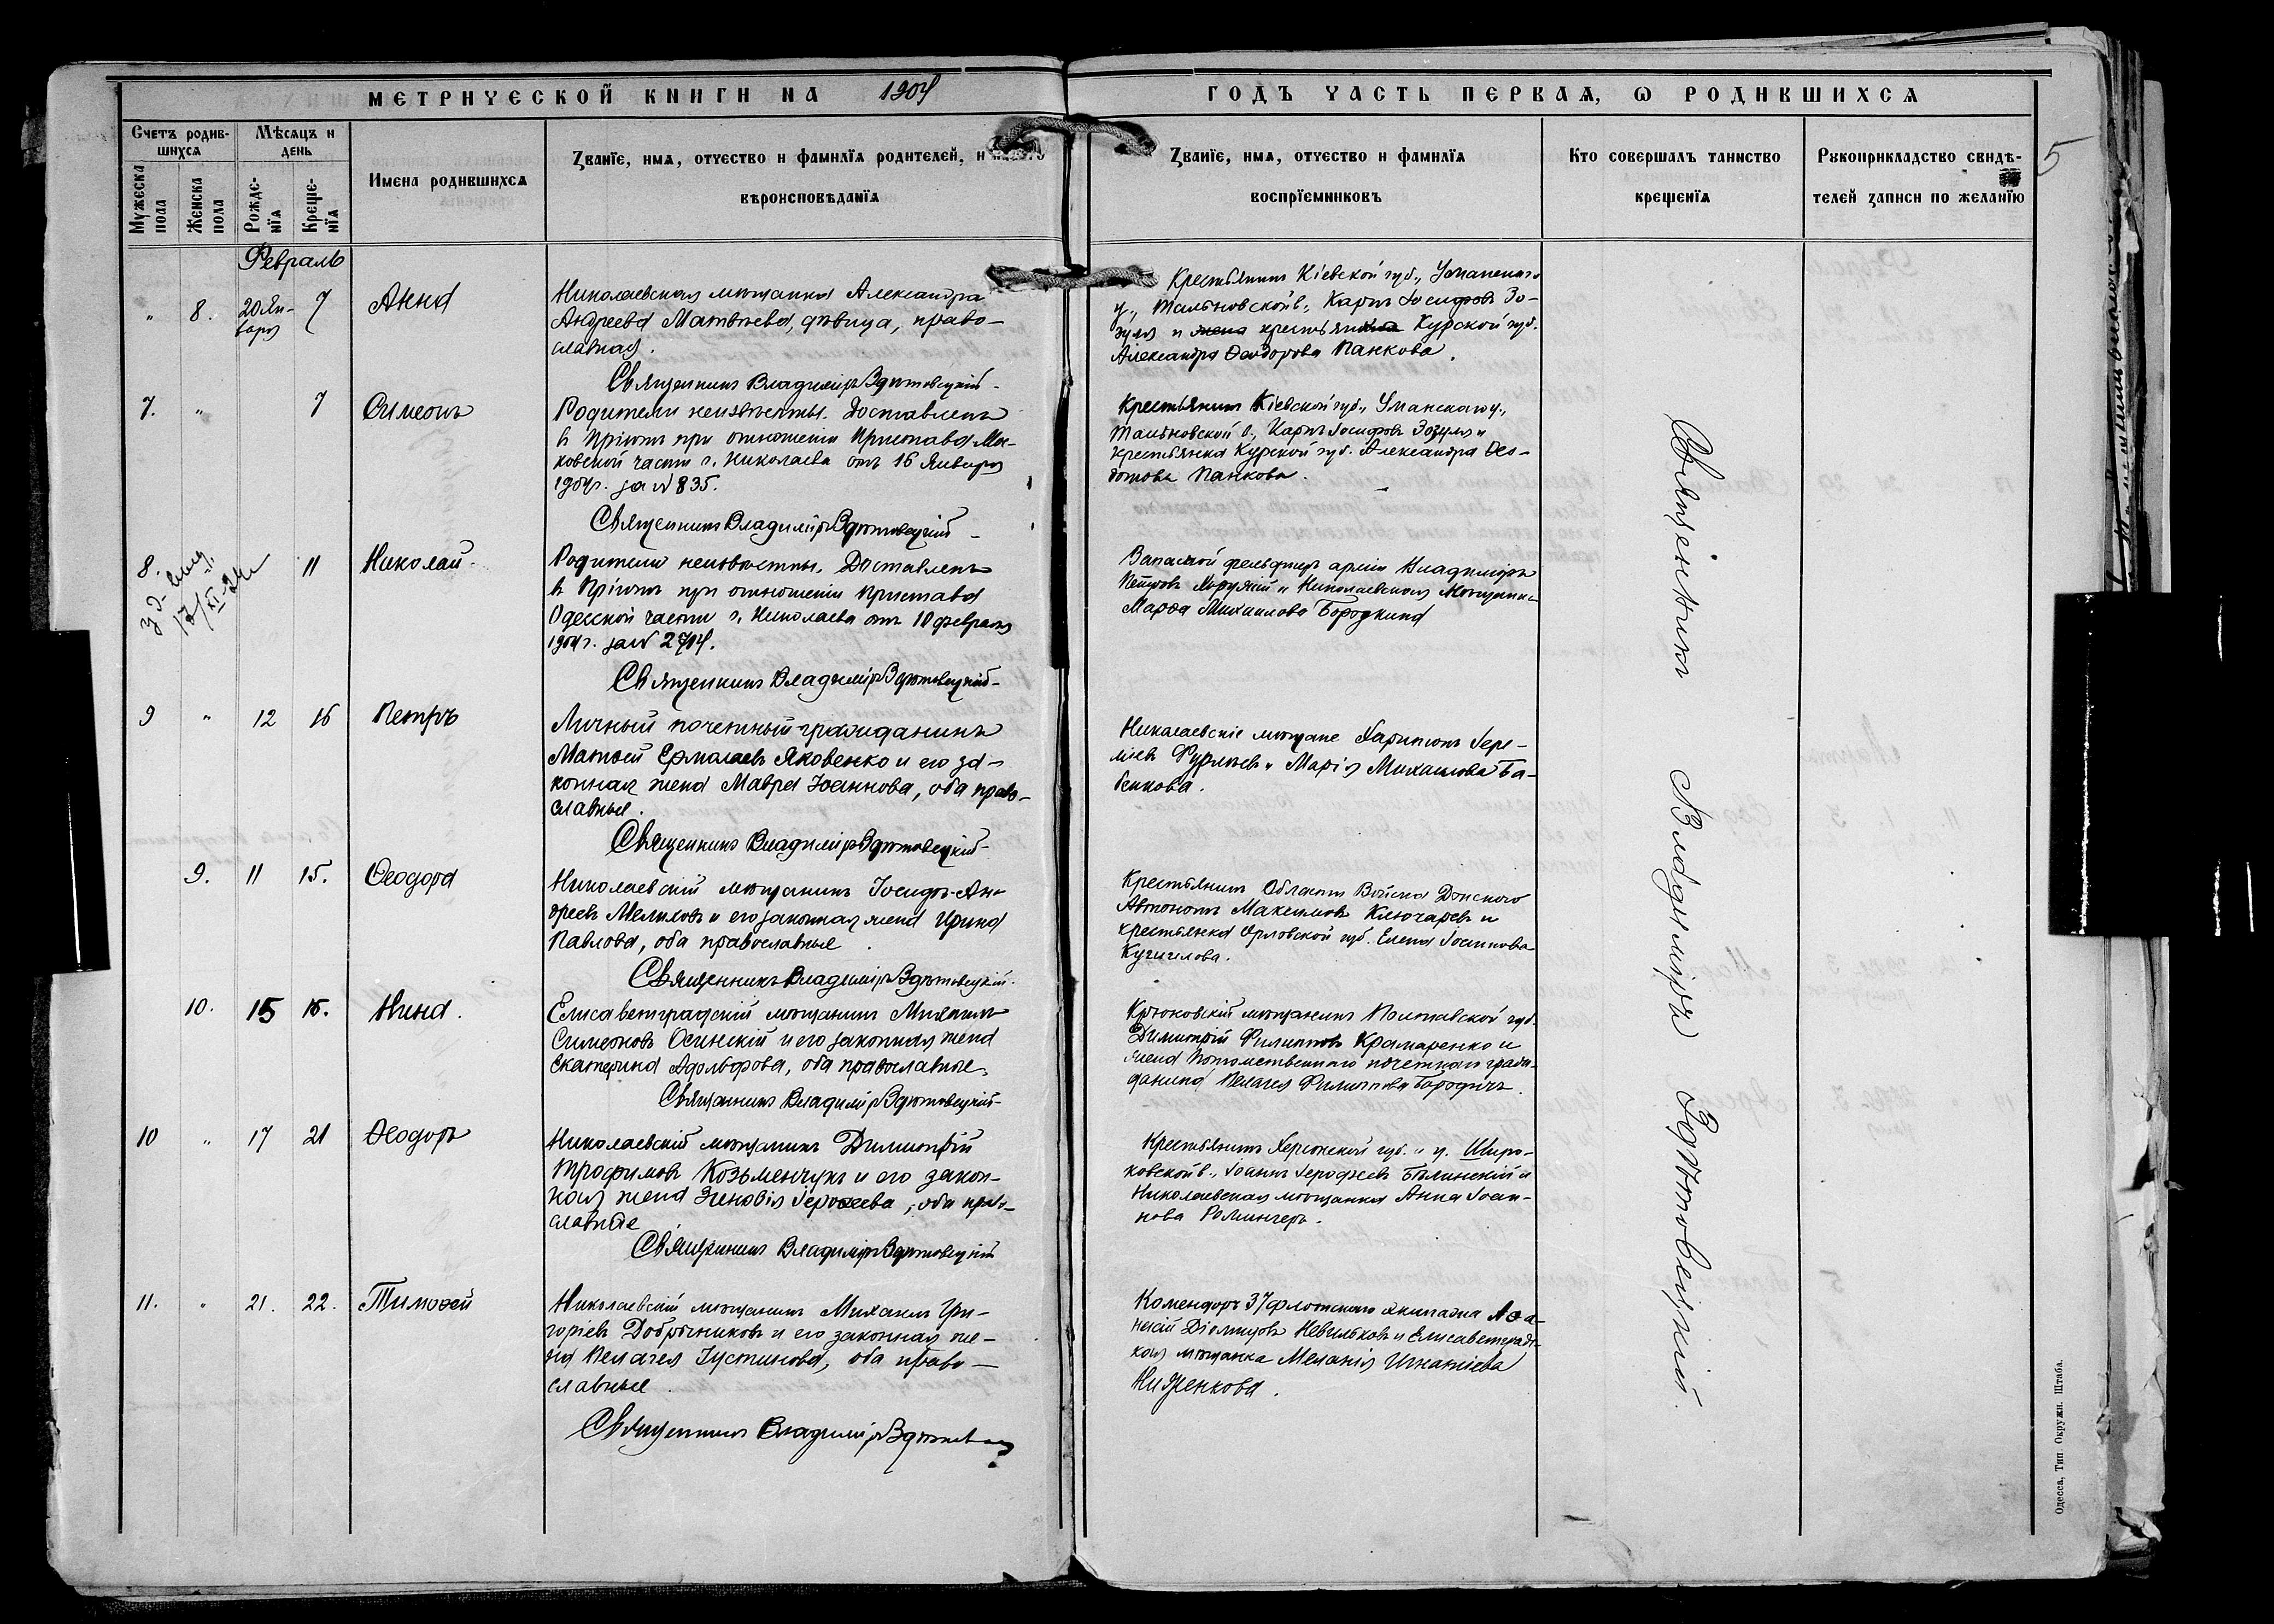 МЕТРИЧЕСКОЙ КНИГИ НА 1904
ГОДЪ ЧАСТЬ ПЕРВАЯ, Ѡ РОДИВШИХСЯ
5
Счетъ родив-
шихся
Мѣсяцъ и
день
Мужеска
пола
Женска
пола
Рожде-
нїя
Креще-
нїя
Имена родившихся
Званїе, имя, отчество и фамилїя родителей, и
вѣроисповѣданїя
Званїе, имя, отчество и фамилїя
воспрїемниковъ
Кто совершалъ таинство
крещенїя
Рукоприкладство свидѣ-
телей записи по желанїю
Февраль
" 8. 20 Ян-
варя 7 Анна
Николаевская мѣщанка Александра
Андреева Матвѣева, дѣвица, право-
славная.
Священникъ Владиміръ Здѣтовецкій
Крестьянинъ Кіевской губ., Уманскаго
у., Тальновской в., Карпъ Іосифовъ Зо-
зуля и жена крестьянка Курской губ.
Александра Ѳеодорова Панкова.
7. " 7 Симеонъ
Родители неизвѣстны. Доставленъ
въ Пріютъ при отношеніи Пристава Мо-
ковской части г. Николаева отъ 16 Января
1904г. за N 835.
Священникъ Владиміръ Здѣтовецкій
Крестьянинъ Кіевской губ., Уманскаго у.,
Тальновской в., Карпъ Іосифовъ Зозуля и
крестьянка Курской губ. Александра Ѳео-
дотова Панкова.
8. 11 Николай.
Родители неизвѣстны. Доставленъ
въ Пріютъ при отношеніи Пристава
Одесской части г. Николаева отъ 10 февраля
1904г. за N 2704.
Священникъ Владиміръ Здѣтовецкій
Запасной фельдшеръ арміи Владиміръ
Петровъ и Николаевская Мѣщанка
Марѳа Михаилова Бородкина
9 " 12 16 Петръ
Личный почетный гражданинъ
Матѳей Ермолаевъ Яковенко и его за-
конная жена Мавра Іоаннова, оба право-
славные.
Священникъ Владиміръ Здѣтовецкій
Николаевскіе мѣщане Харитонъ Іере-
міевъ и Марія Михаилова Ба-
бенкова.
9. 11 15. Ѳеодора
Николаевскій мѣщанинъ Іосифъ Ан-
дреевъ Мелиховъ и его законная жена Ирина
Павлова, оба православные.
Священникъ Владиміръ Здѣтовецкій.
Крестьянинъ Области Войска Донского
Автономъ Максимовъ Ключаревъ и
крестьянка Орловской губ. Елена Іоаннова
10. 15 16. Нина.
Елисаветградскій мѣщанинъ Михаилъ
Симеоновъ Осинскій и его законная жена
Екатерина Адольфова, оба православные.
Священникъ Владиміръ Здѣтовецкій
Крюковскій мѣщанинъ Полтавской губ.
Димитрій Филипповъ Крамаренко и
жена потомственнаго почетнаго граж-
данина Пелагея Филиппова Бородичъ.
10 " 17 21 Ѳеодоръ
Николаевскій мѣщанинъ Димитрій
Трофимовъ Козьменчукъ и его закон-
ная жена Зеновія Іероѳеева, оба право-
славные
Священникъ Владиміръ Здѣтовецкій
Крестьянинъ Херсонской губ. и у. Широ-
ковской в., Іоаннъ Іероѳеевъ Бѣлинскій и
Николаевская мѣщанка Анна Іоан-
нова Ромингеръ.
11. " 21. 22. Тимоѳей
Николаевскій мѣщанинъ Михаилъ Гри-
горіевъ Добрынниковъ и его законная же-
на Пелагея Іустинова, оба право-
славные.
Священникъ Владиміръ Здѣтовецкій
Комендоръ 37 флотскаго экипажа Аѳа-
насій Невильковъ и Елисаветградс-
кая мѣщанка Меланія Игнатіева
Ниженкова.
Священникъ Владиміръ Здѣтовецкій.
Одесса, Тип. Окружн. Штаба.